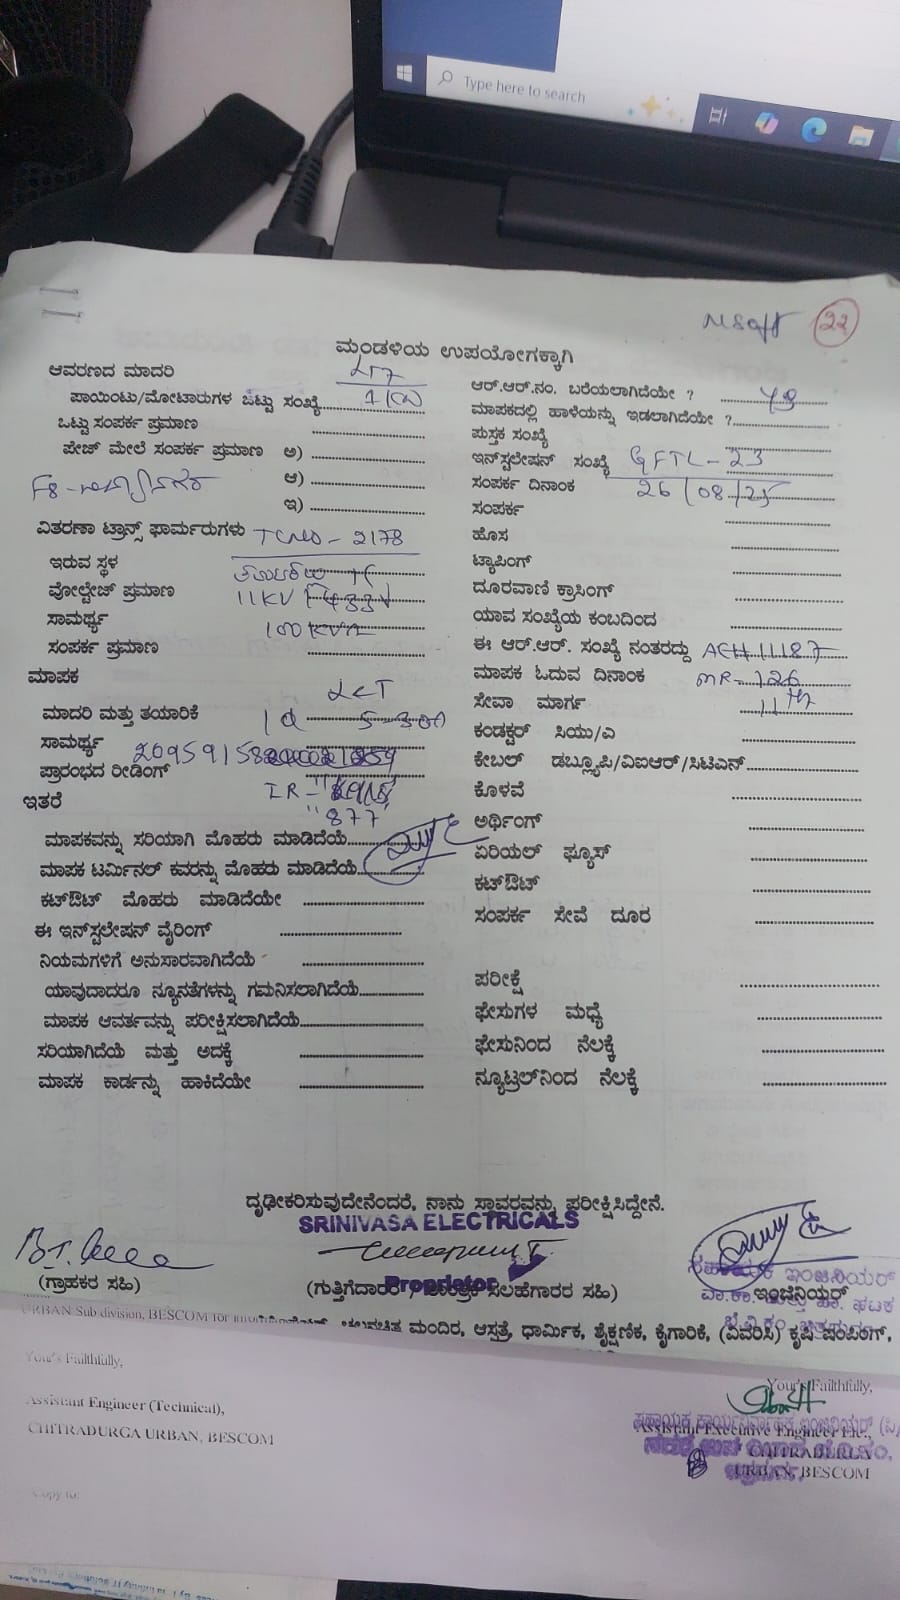 Type here to search
22
ಮಂಡಳಿಯ ಉಪಯೋಗಕ್ಕಾಗಿ
ಆವರಣದ ಮಾದರಿ
ಪಾಯಿಂಟು/ಮೋಟಾರುಗಳ ಒಟ್ಟು ಸಂಖ್ಯೆ
ಒಟ್ಟು ಸಂಪರ್ಕ ಪ್ರಮಾಣ
ಪೇಜ್ ಮೇಲೆ ಸಂಪರ್ಕ ಪ್ರಮಾಣ ಅ)
ಆ)
ಇ)
ವಿತರಣಾ ಟ್ರಾನ್ಸ್ ಫಾರ್ಮರುಗಳು TCNO - 2178
ಇರುವ ಸ್ಥಳ
ವೋಲ್ಟೇಜ್ ಪ್ರಮಾಣ 11KV
ಸಾಮರ್ಥ್ಯ 100 KVA
ಸಂಪರ್ಕ ಪ್ರಮಾಣ
ಮಾಪಕ
ಮಾದರಿ ಮತ್ತು ತಯಾರಿಕೆ L&T
ಸಾಮರ್ಥ್ಯ
ಪ್ರಾರಂಭದ ರೀಡಿಂಗ್
ಇತರೆ 877
ಮಾಪಕವನ್ನು ಸರಿಯಾಗಿ ಮೊಹರು ಮಾಡಿದೆಯೆ
ಮಾಪಕ ಟರ್ಮಿನಲ್ ಕವರನ್ನು ಮೊಹರು ಮಾಡಿದೆಯೆ
ಕಟ್‌ಔಟ್ ಮೊಹರು ಮಾಡಿದೆಯೇ
ಈ ಇನ್‌ಸ್ಟಲೇಷನ್ ವೈರಿಂಗ್
ನಿಯಮಗಳಿಗೆ ಅನುಸಾರವಾಗಿದೆಯೆ
ಯಾವುದಾದರೂ ನ್ಯೂನತೆಗಳನ್ನು ಗಮನಿಸಲಾಗಿದೆಯೆ
ಮಾಪಕ ಆವರ್ತವನ್ನು ಪರೀಕ್ಷಿಸಲಾಗಿದೆಯೆ
ಸರಿಯಾಗಿದೆಯೆ ಮತ್ತು ಅದಕ್ಕೆ
ಮಾಪಕ ಕಾರ್ಡನ್ನು ಹಾಕಿದೆಯೇ
ಆರ್.ಆರ್.ನಂ. ಬರೆಯಲಾಗಿದೆಯೇ ?
ಮಾಪಕದಲ್ಲಿ ಹಾಳೆಯನ್ನು ಇಡಲಾಗಿದೆಯೇ ?
ಪುಸ್ತಕ ಸಂಖ್ಯೆ
ಇನ್‌ಸ್ಟಲೇಷನ್ ಸಂಖ್ಯೆ GFTL - 23
ಸಂಪರ್ಕ ದಿನಾಂಕ 26/08/25
ಸಂಪರ್ಕ
ಹೊಸ
ಟ್ಯಾಪಿಂಗ್
ದೂರವಾಣಿ ಕ್ರಾಸಿಂಗ್
ಯಾವ ಸಂಖ್ಯೆಯ ಕಂಬದಿಂದ
ಈ ಆರ್.ಆರ್. ಸಂಖ್ಯೆ ನಂತರದ್ದು AEH 11187
ಮಾಪಕ ಓದುವ ದಿನಾಂಕ MR - 126
ಸೇವಾ ಮಾರ್ಗ 11th
ಕಂಡಕ್ಟರ್ ಸಿಯು/ಎ
ಕೇಬಲ್ ಡಬ್ಲ್ಯೂಪಿ/ವಿಐಆರ್/ಸಿಟಿಎನ್
ಕೊಳವೆ
ಅರ್ಥಿಂಗ್
ಏರಿಯಲ್ ಫ್ಯೂಸ್
ಕಟ್‌ಔಟ್
ಸಂಪರ್ಕ ಸೇವೆ ದೂರ
ಪರೀಕ್ಷೆ
ಫೇಸುಗಳ ಮಧ್ಯೆ
ಫೇಸುನಿಂದ ನೆಲಕ್ಕೆ
ನ್ಯೂಟ್ರಲ್‌ನಿಂದ ನೆಲಕ್ಕೆ
ದೃಢೀಕರಿಸುವುದೇನೆಂದರೆ, ನಾನು ಸ್ಥಾವರವನ್ನು ಪರೀಕ್ಷಿಸಿದ್ದೇನೆ.
SRINIVASA ELECTRICALS
Proprietor
(ಗ್ರಾಹಕರ ಸಹಿ)
ಸಲಹೆಗಾರರ ಸಹಿ)
ಇಂಜಿನಿಯರ್
ಮಂದಿರ, ಆಸ್ಪತ್ರೆ, ಧಾರ್ಮಿಕ, ಶೈಕ್ಷಣಿಕ, ಕೈಗಾರಿಕೆ, (ವಿವರಿಸಿ) ಕೃಷಿ
URBAN Sub division, BESCOM for
Your's Failthfully,
Your's Failthfully,
Assistant Engineer (Technical),
CHITRADURGA URBAN, BESCOM
Assistant Executive Engineer Ele.,
CHITRADURGA
URBAN, BESCOM
Copy to: